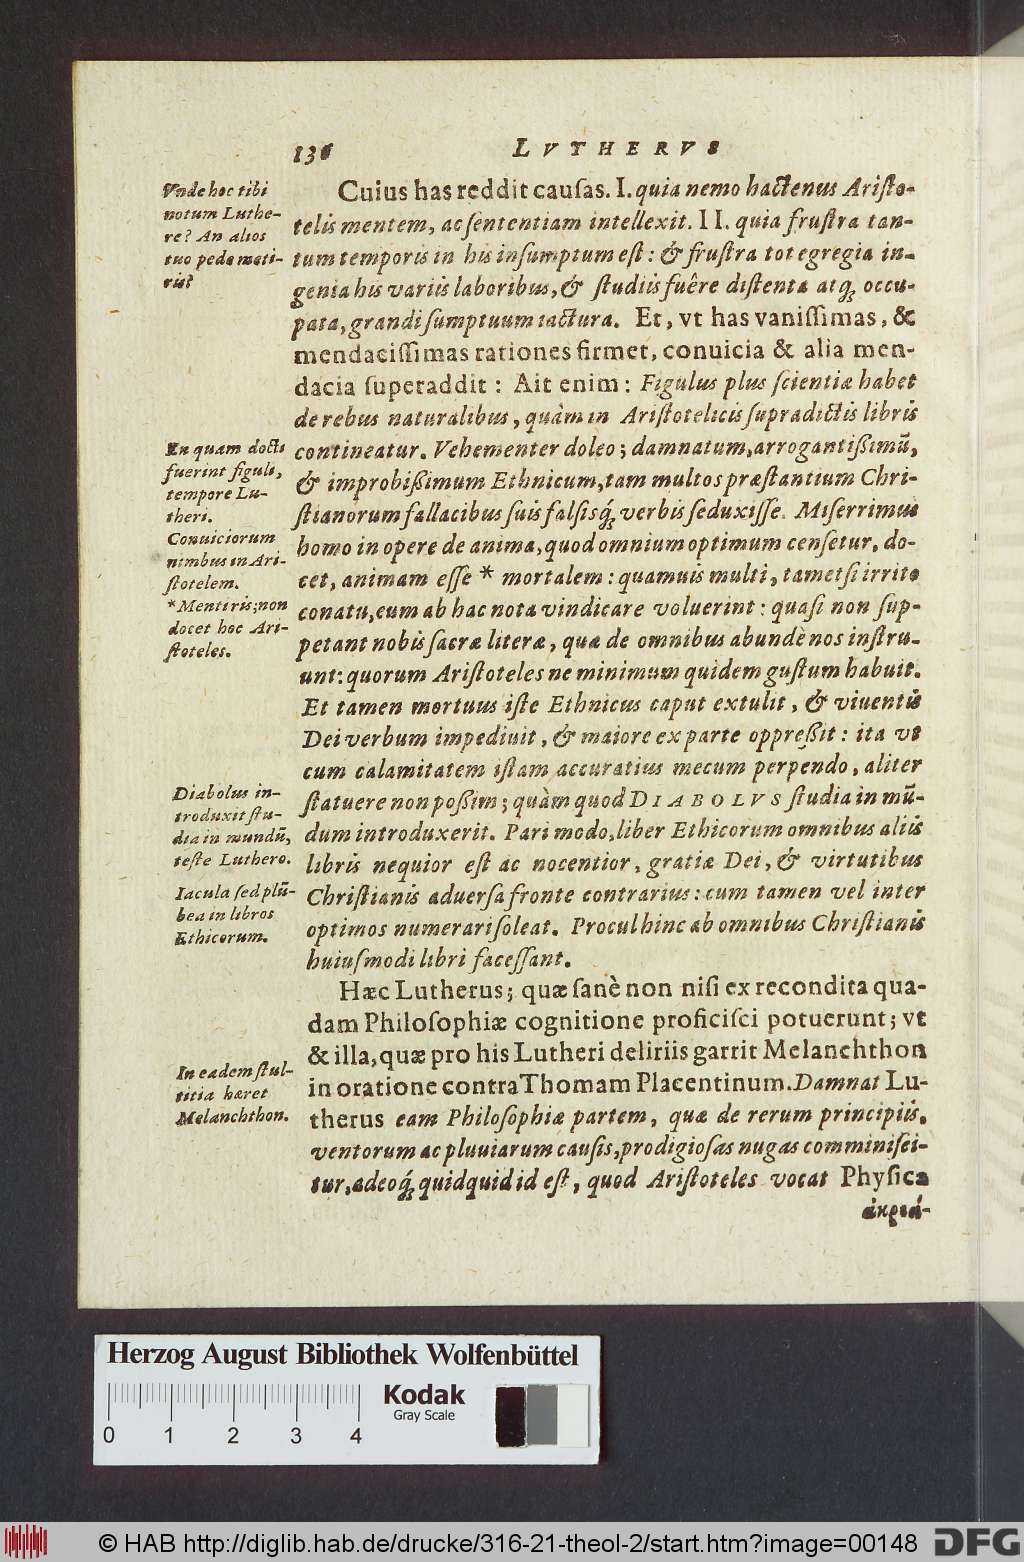 136 LVTHERVS
Cuius has reddit causas. I. quia nemo hactenus Aristo-
telis mentem, ac sententiam intellexit. II. quia frustra tan-
tum temporis in his insumptum est: & frustra tot egregia in-
genia his variis laboribus, & studiis fuêre distenta atq́; occu-
pata, grandi sumptuum iactura. Et, vt has vanissimas, &
mendacissimas rationes firmet, conuicia & alia men-
dacia superaddit: Ait enim: Figulus plus scientiæ habet
de rebus naturalibus, quàm in Aristotelicis supradictis libris
contineatur. Vehementer doleo; damnatum, arrogantißimũ,
& improbißimum Ethnicum, tam multos præstantium Chri-
stianorum fallacibus suis falsisq́; verbis seduxisse. Miserrimus
homo in opere de anima, quod omnium optimum censetur, do-
cet, animam esse * mortalem: quamuis multi, tametsi irrito
conatu, eum ab hac nota vindicare voluerint: quasi non sup-
petant nobis sacræ literæ, quæ de omnibus abundè nos instru-
unt: quorum Aristoteles ne minimum quidem gustum habuit.
Et tamen mortuus iste Ethnicus caput extulit, & viuentis
Dei verbum impediuit, & maiore ex parte oppreßit: ita vt
cum calamitatem istam accuratius mecum perpendo, aliter
statuere non poßim; quàm quod DIABOLVS studia in mũ-
dum introduxerit. Pari modo, liber Ethicorum omnibus aliis
libris nequior est ac nocentior, gratiæ Dei, & virtutibus
Christianis aduersa fronte contrarius: cum tamen vel inter
optimos numerari soleat. Procul hinc ab omnibus Christianis
huiusmodi libri facessant.
Hæc Lutherus; quæ sanè non nisi ex recondita qua-
dam Philosophiæ cognitione proficisci potuerunt; vt
& illa, quæ pro his Lutheri deliriis garrit Melanchthon
in oratione contra Thomam Placentinum. Damnat Lu-
therus eam Philosophiæ partem, quæ de rerum principiis,
ventorum ac pluuiarum causis, prodigiosas nugas comminisci-
tur, adeoq́; quidquid id est, quod Aristoteles vocat Physica
ἀκροά-
Vnde hoc tibi
notum Luthe-
re? An alios
tuo pede meti-
ris?
En quam docti
fuerint figuli,
tempore Lu-
theri.
Conuiciorum
nimbus in Ari-
stotelem.
* Mentiris; non
docet hoc Ari-
stoteles.
Diabolus in-
troduxit stu-
dia in mundũ,
teste Luthero.
Iacula sed plũ-
bea in libros
Ethicorum.
In eadem stul-
titia hæret
Melanchthon.
Herzog August Bibliothek Wolfenbüttel
Kodak
Gray Scale
0 1 2 3 4
© HAB http://diglib.hab.de/drucke/316-21-theol-2/start.htm?image=00148
DFG